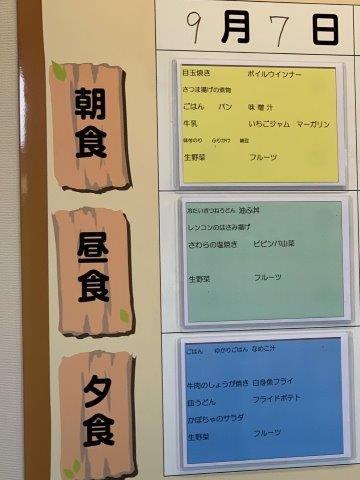 9月7日
朝食
目玉焼き ボイルウインナー
さつま揚げの煮物
ごはん パン 味噌汁
牛乳 いちごジャム マーガリン
味付のり ふりかけ 納豆
生野菜 フルーツ
昼食
冷たいきつねうどん 油ふ丼
レンコンのはさみ揚げ
さわらの塩焼き ビビンバ山菜
生野菜 フルーツ
夕食
ごはん ゆかりごはん なめこ汁
牛肉のしょうが焼き 白身魚フライ
皿うどん フライドポテト
かぼちゃのサラダ
生野菜 フルーツ